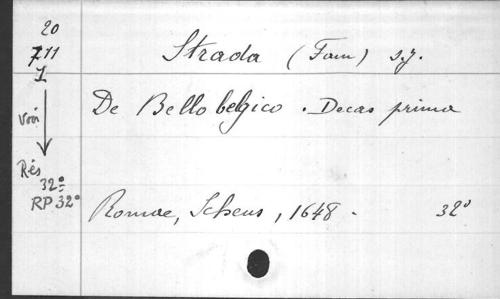 20
711
1
Strada (Fam) s.j.
De Bello belgico. Decas prima
Voir
Rés
32º
RP 32º
Romae, Scheus, 1648. 32º